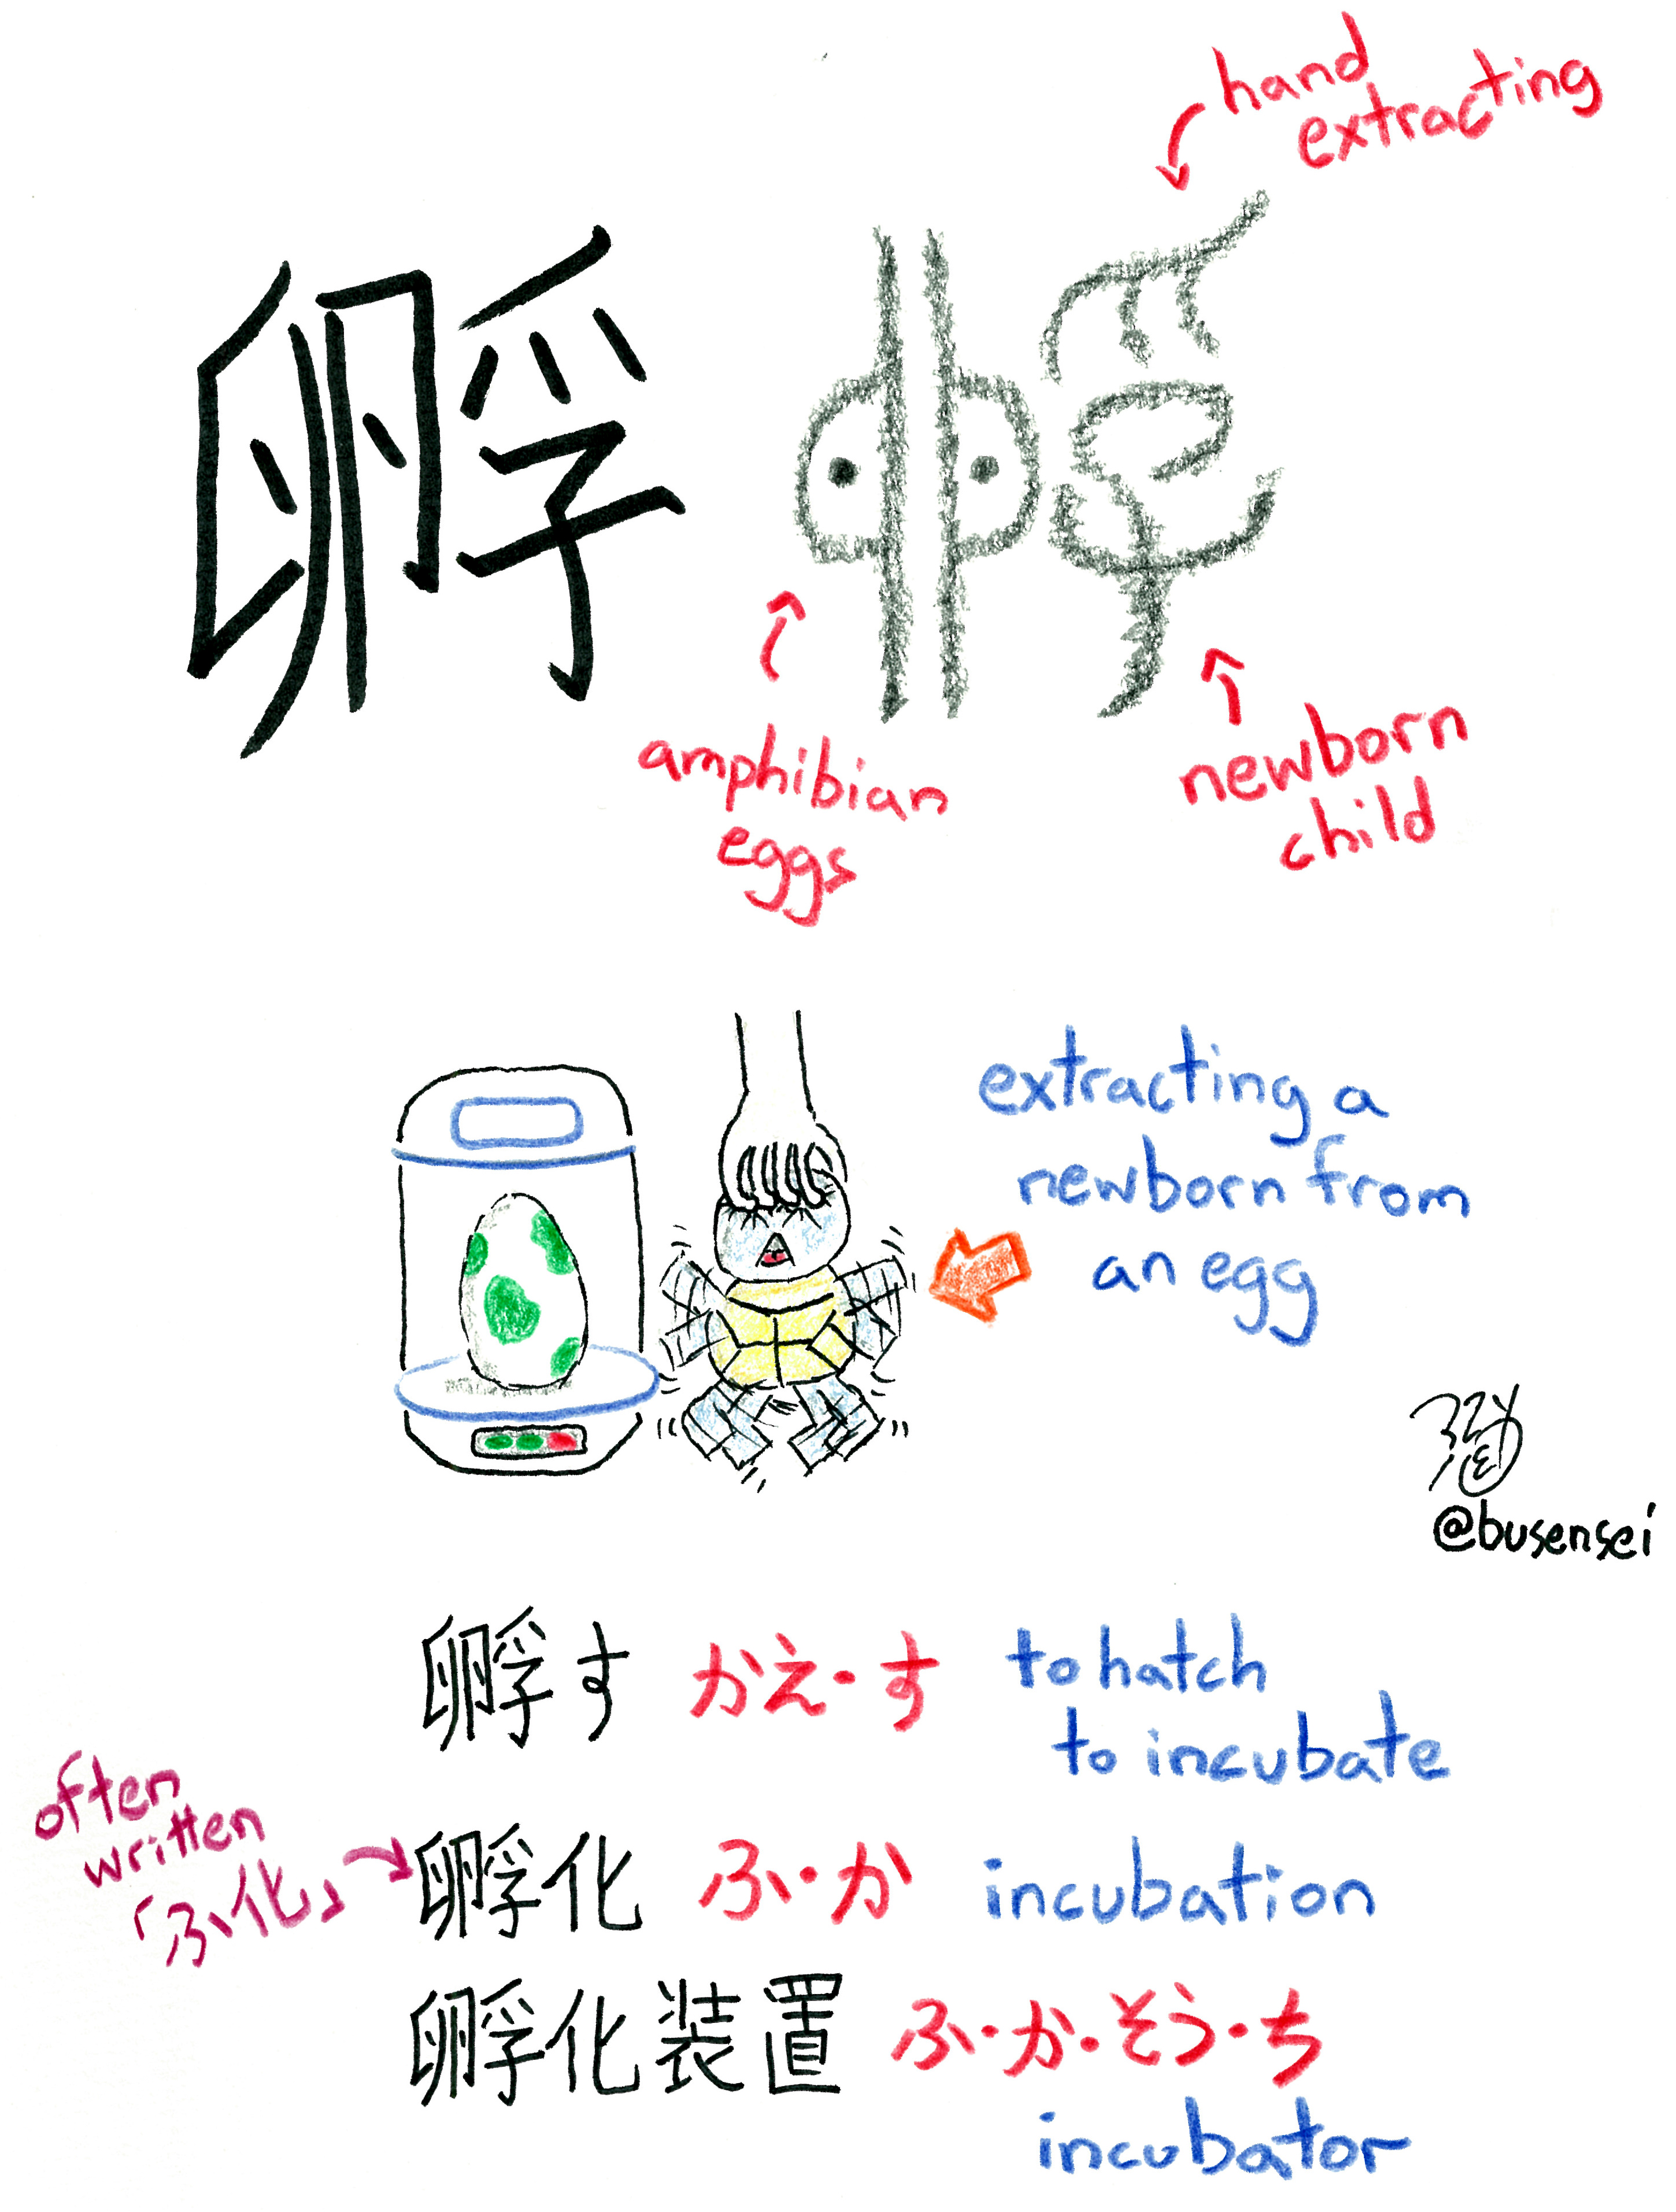 hand
extracting
孵
amphibian
eggs
newborn
child
extracting a
newborn from
an egg
@busensei
孵す かえ・す to hatch
to incubate
often
written
「ふ化」
孵化 ふ・か incubation
孵化装置 ふ・か・そう・ち
incubator